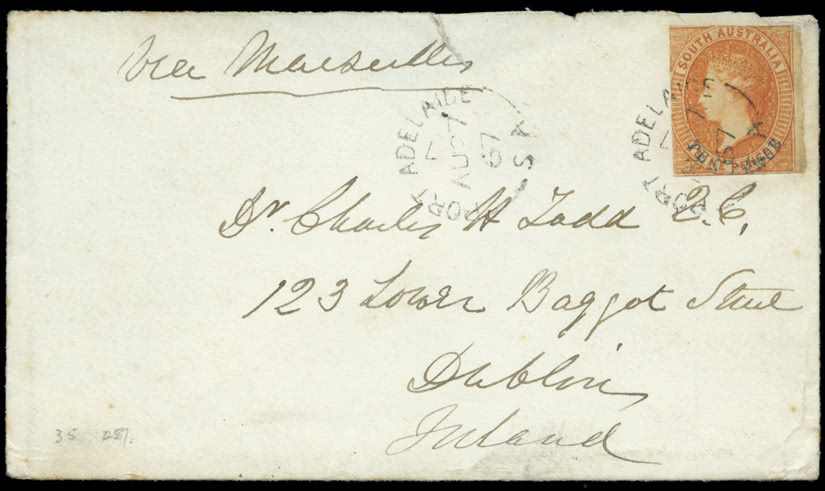 Via Marseilles
SOUTH AUSTRALIA
TEN PENCE
PORT ADELAIDE
7
AU 7
67
S A
PORT ADELAIDE
7
67
A
Dr. Charles H Todd Q.C,
123 Lower Baggot Street
Dublin
Ireland
35